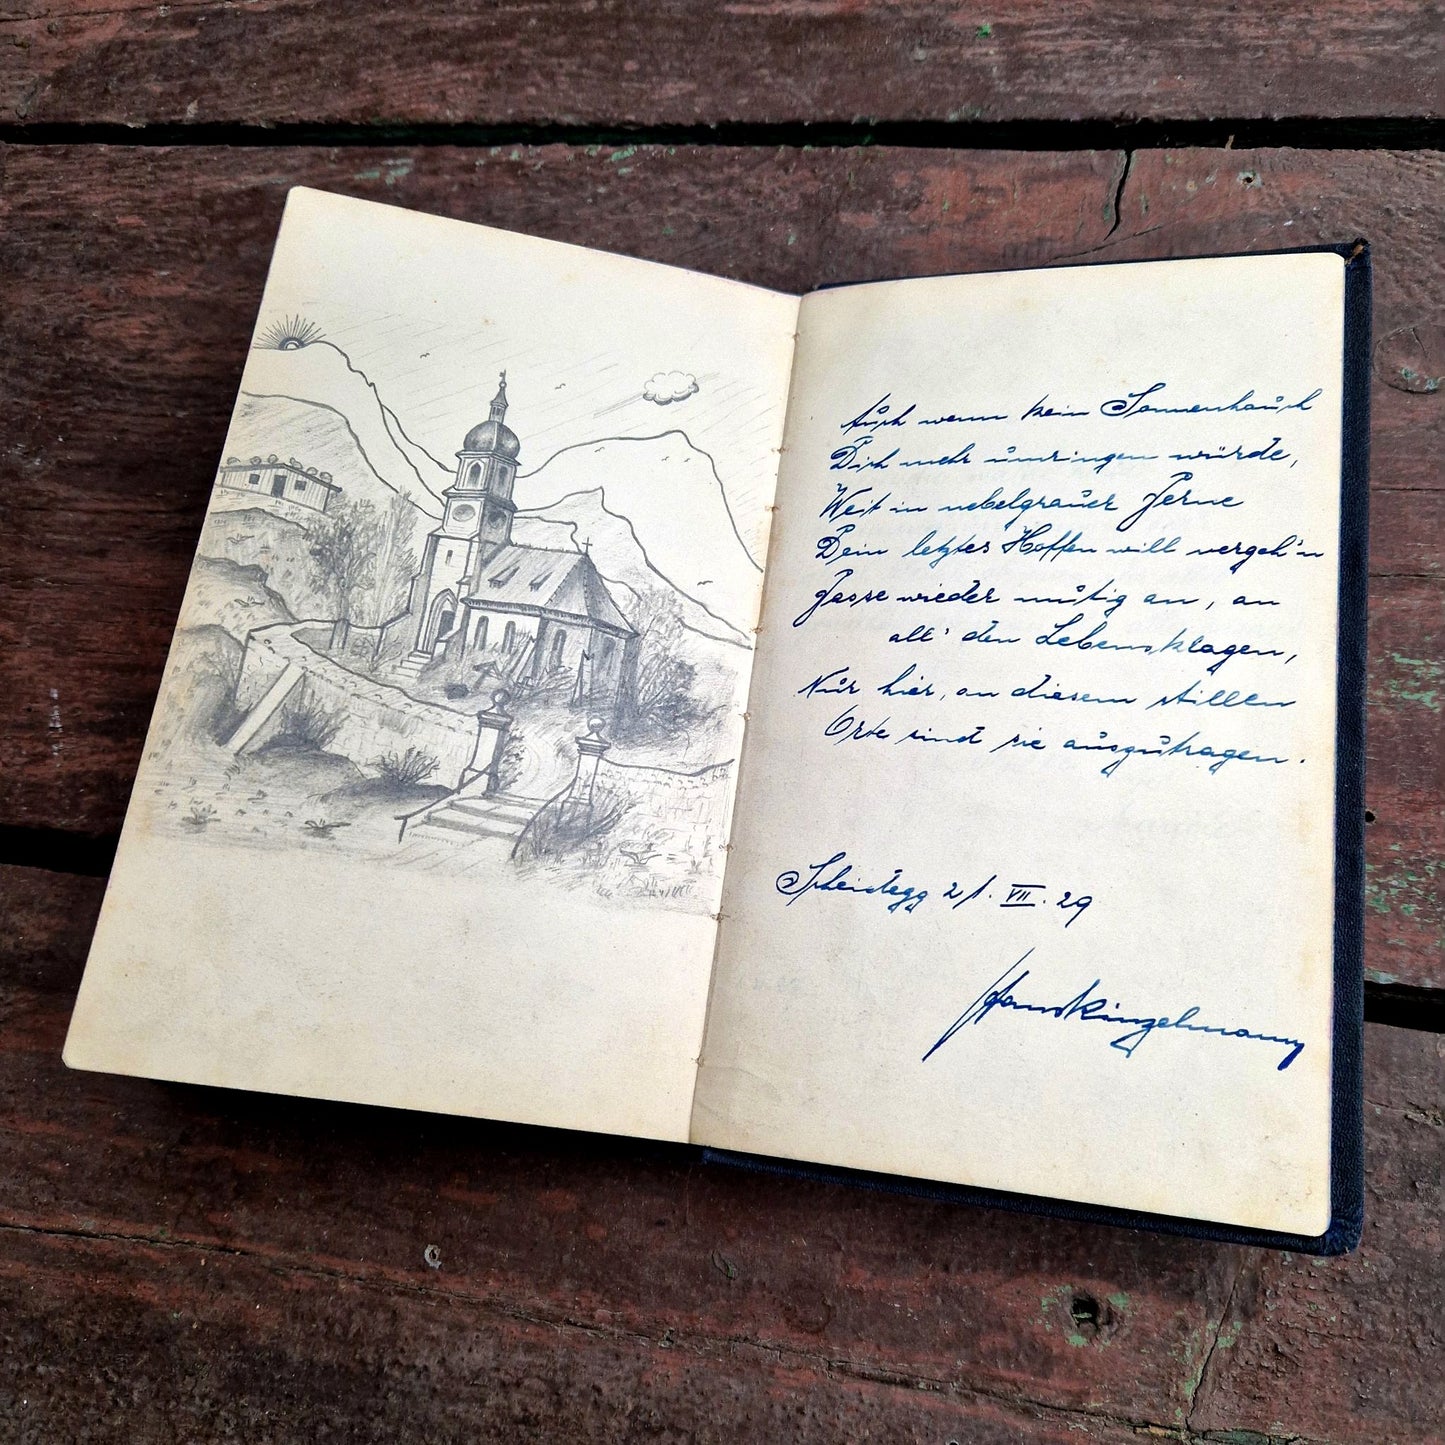 Auch wenn kein Sonnenhauch
Dich mehr umringen würde,
Weit in nebelgrauer Ferne
Dein letztes Hoffen will vergeh'n
Fasse wieder mutig an, an
all' den Lebensklagen,
Nur hier, an diesem stillen
Orte sind sie auszutragen.
Scheidegg 21. VII. 29
Hans Kinzelmann